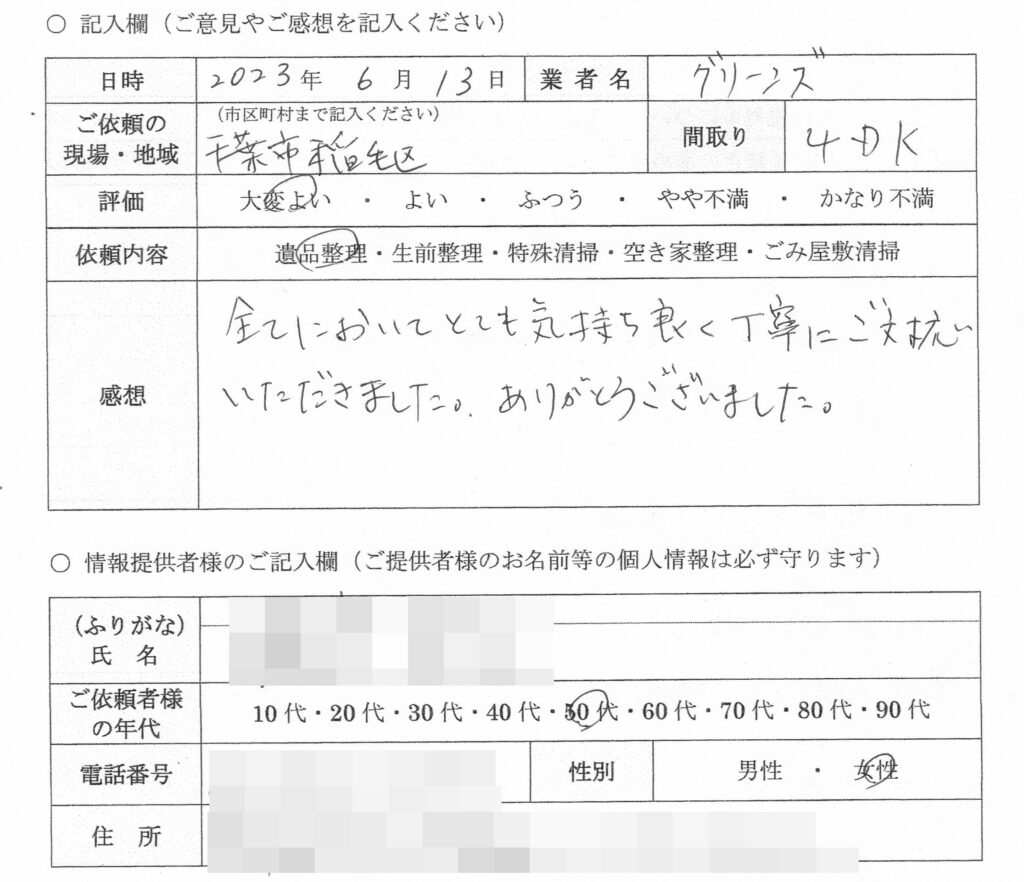 ○ 記入欄（ご意見やご感想を記入ください）
日時 2023年 6月 13日 業者名 グリーンズ
ご依頼の現場・地域 （市区町村まで記入ください） 千葉市稲毛区 間取り 4DK
評価 大変よい ・ よい ・ ふつう ・ やや不満 ・ かなり不満
依頼内容 遺品整理・生前整理・特殊清掃・空き家整理・ごみ屋敷清掃
感想
全てにおいてとても気持ち良く丁寧にご対応
いただきました。ありがとうございました。
○ 情報提供者様のご記入欄（ご提供者様のお名前等の個人情報は必ず守ります）
（ふりがな）
氏 名
ご依頼者様の年代 10代・20代・30代・40代・50代・60代・70代・80代・90代
電話番号 性別 男性 ・ 女性
住 所